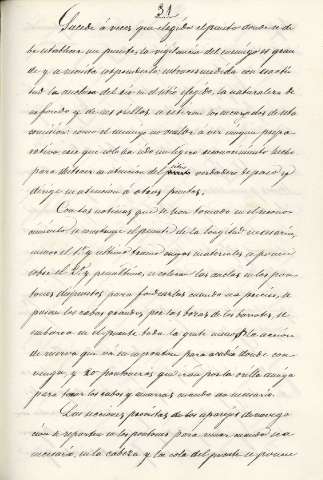 31
Sucede á veces que elegido el punto donde se de-
be establecer un puente, la vigilancia del enemigo es gran-
de y a media respondiente, medida con exacti-
tud la anchura del rio en el sitio elegido, la naturaleza de
su fondo y de sus orillas, se retiran los encargados de esta
comision: como el enemigo no vuelve a ver ningun prepa-
rativo cree que solo ha sido un ligero reconocimiento hecho
para distraer la atencion del sitio verdadero de paso y
dirige su atencion a otros puntos.
Con las noticias que se han tomado en el recono-
cimiento se construye el puente de la longitud necesaria,
menos el 1º y ultimo tramo cuyos materiales se ponen
sobre el 2º y penultimo, se colocan las anclas en los pon-
tones dispuestas para fondearlas cuando sea preciso, se
pasan los cabos grandes por las bordas de los barcos, se
embarca en el puente toda la gente menos la seccion
de reserva que va en un ponton para acudir donde con-
venga, y 20 pontoneros que iran por la orilla amiga
para tomar los cabos y amarras cuando sea necesario.
Las secciones provistas de los aparejos de navega-
cion se reparten en los pontones para remar cuando sea
necesario, en la cabeza y la cola del puente se ponen